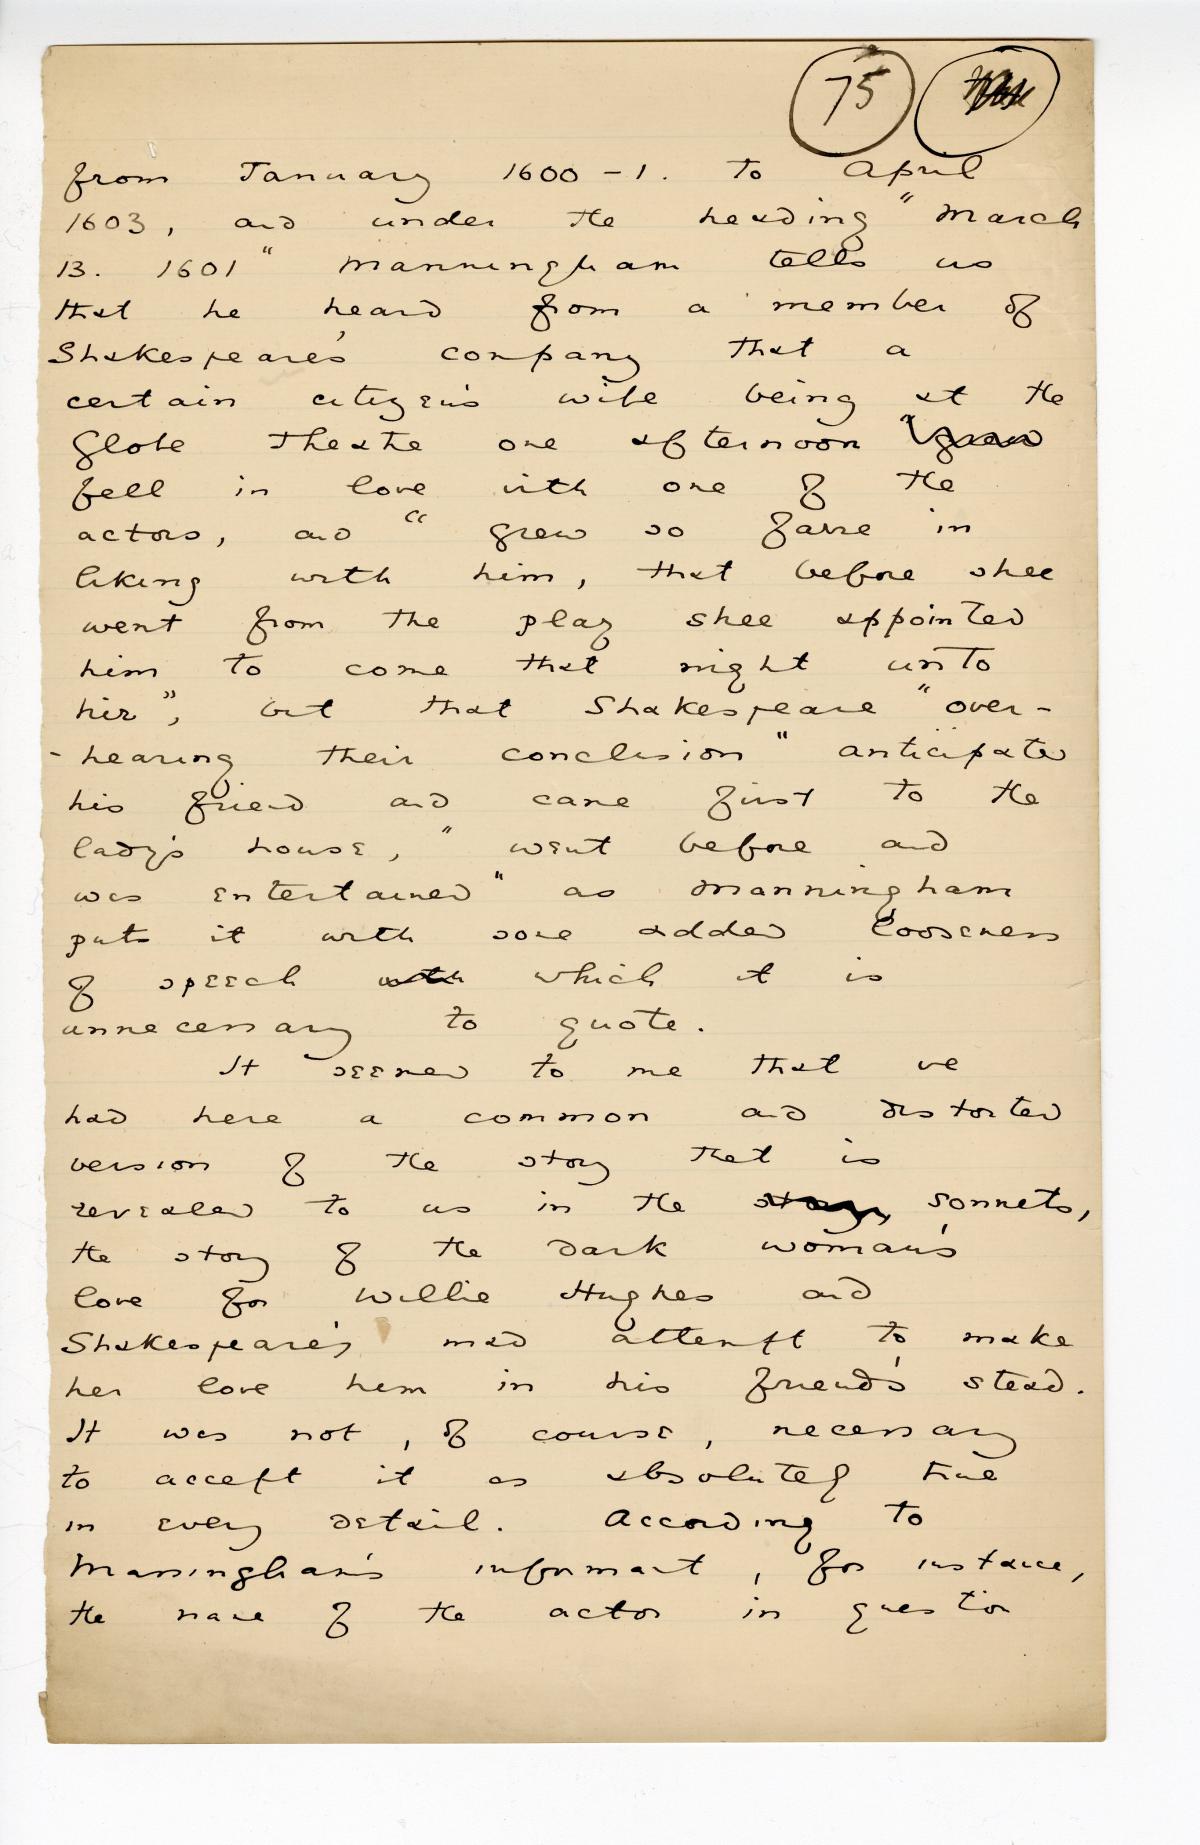 75
from January 1600-1. to April
1603, and under the heading "March
13. 1601" Manningham tells us
that he heard from a member of
Shakespeare's company that a
certain citizen's wife being at the
Globe Theatre one afternoon "grew
fell in love with one of the
actors, and "grew so farre in
liking with him, that before shee
went from the play shee appointed
him to come that night unto
hir", but that Shakespeare "over-
-hearing their conclusion" anticipated
his friend and came first to the
lady's house, "went before and
was entertained" as Manningham
puts it with some added looseness
of speech with which it is
unnecessary to quote.
It seemed to me that we
had here a common and distorted
version of the story that is
revealed to us in the story, sonnets,
the story of the dark woman's
love for Willie Hughes and
Shakespeare's mad attempt to make
her love him in his friend's stead.
It was not, of course, necessary
to accept it as absolutely true
in every detail. According to
Manningham's informant, for instance,
the name of the actor in question